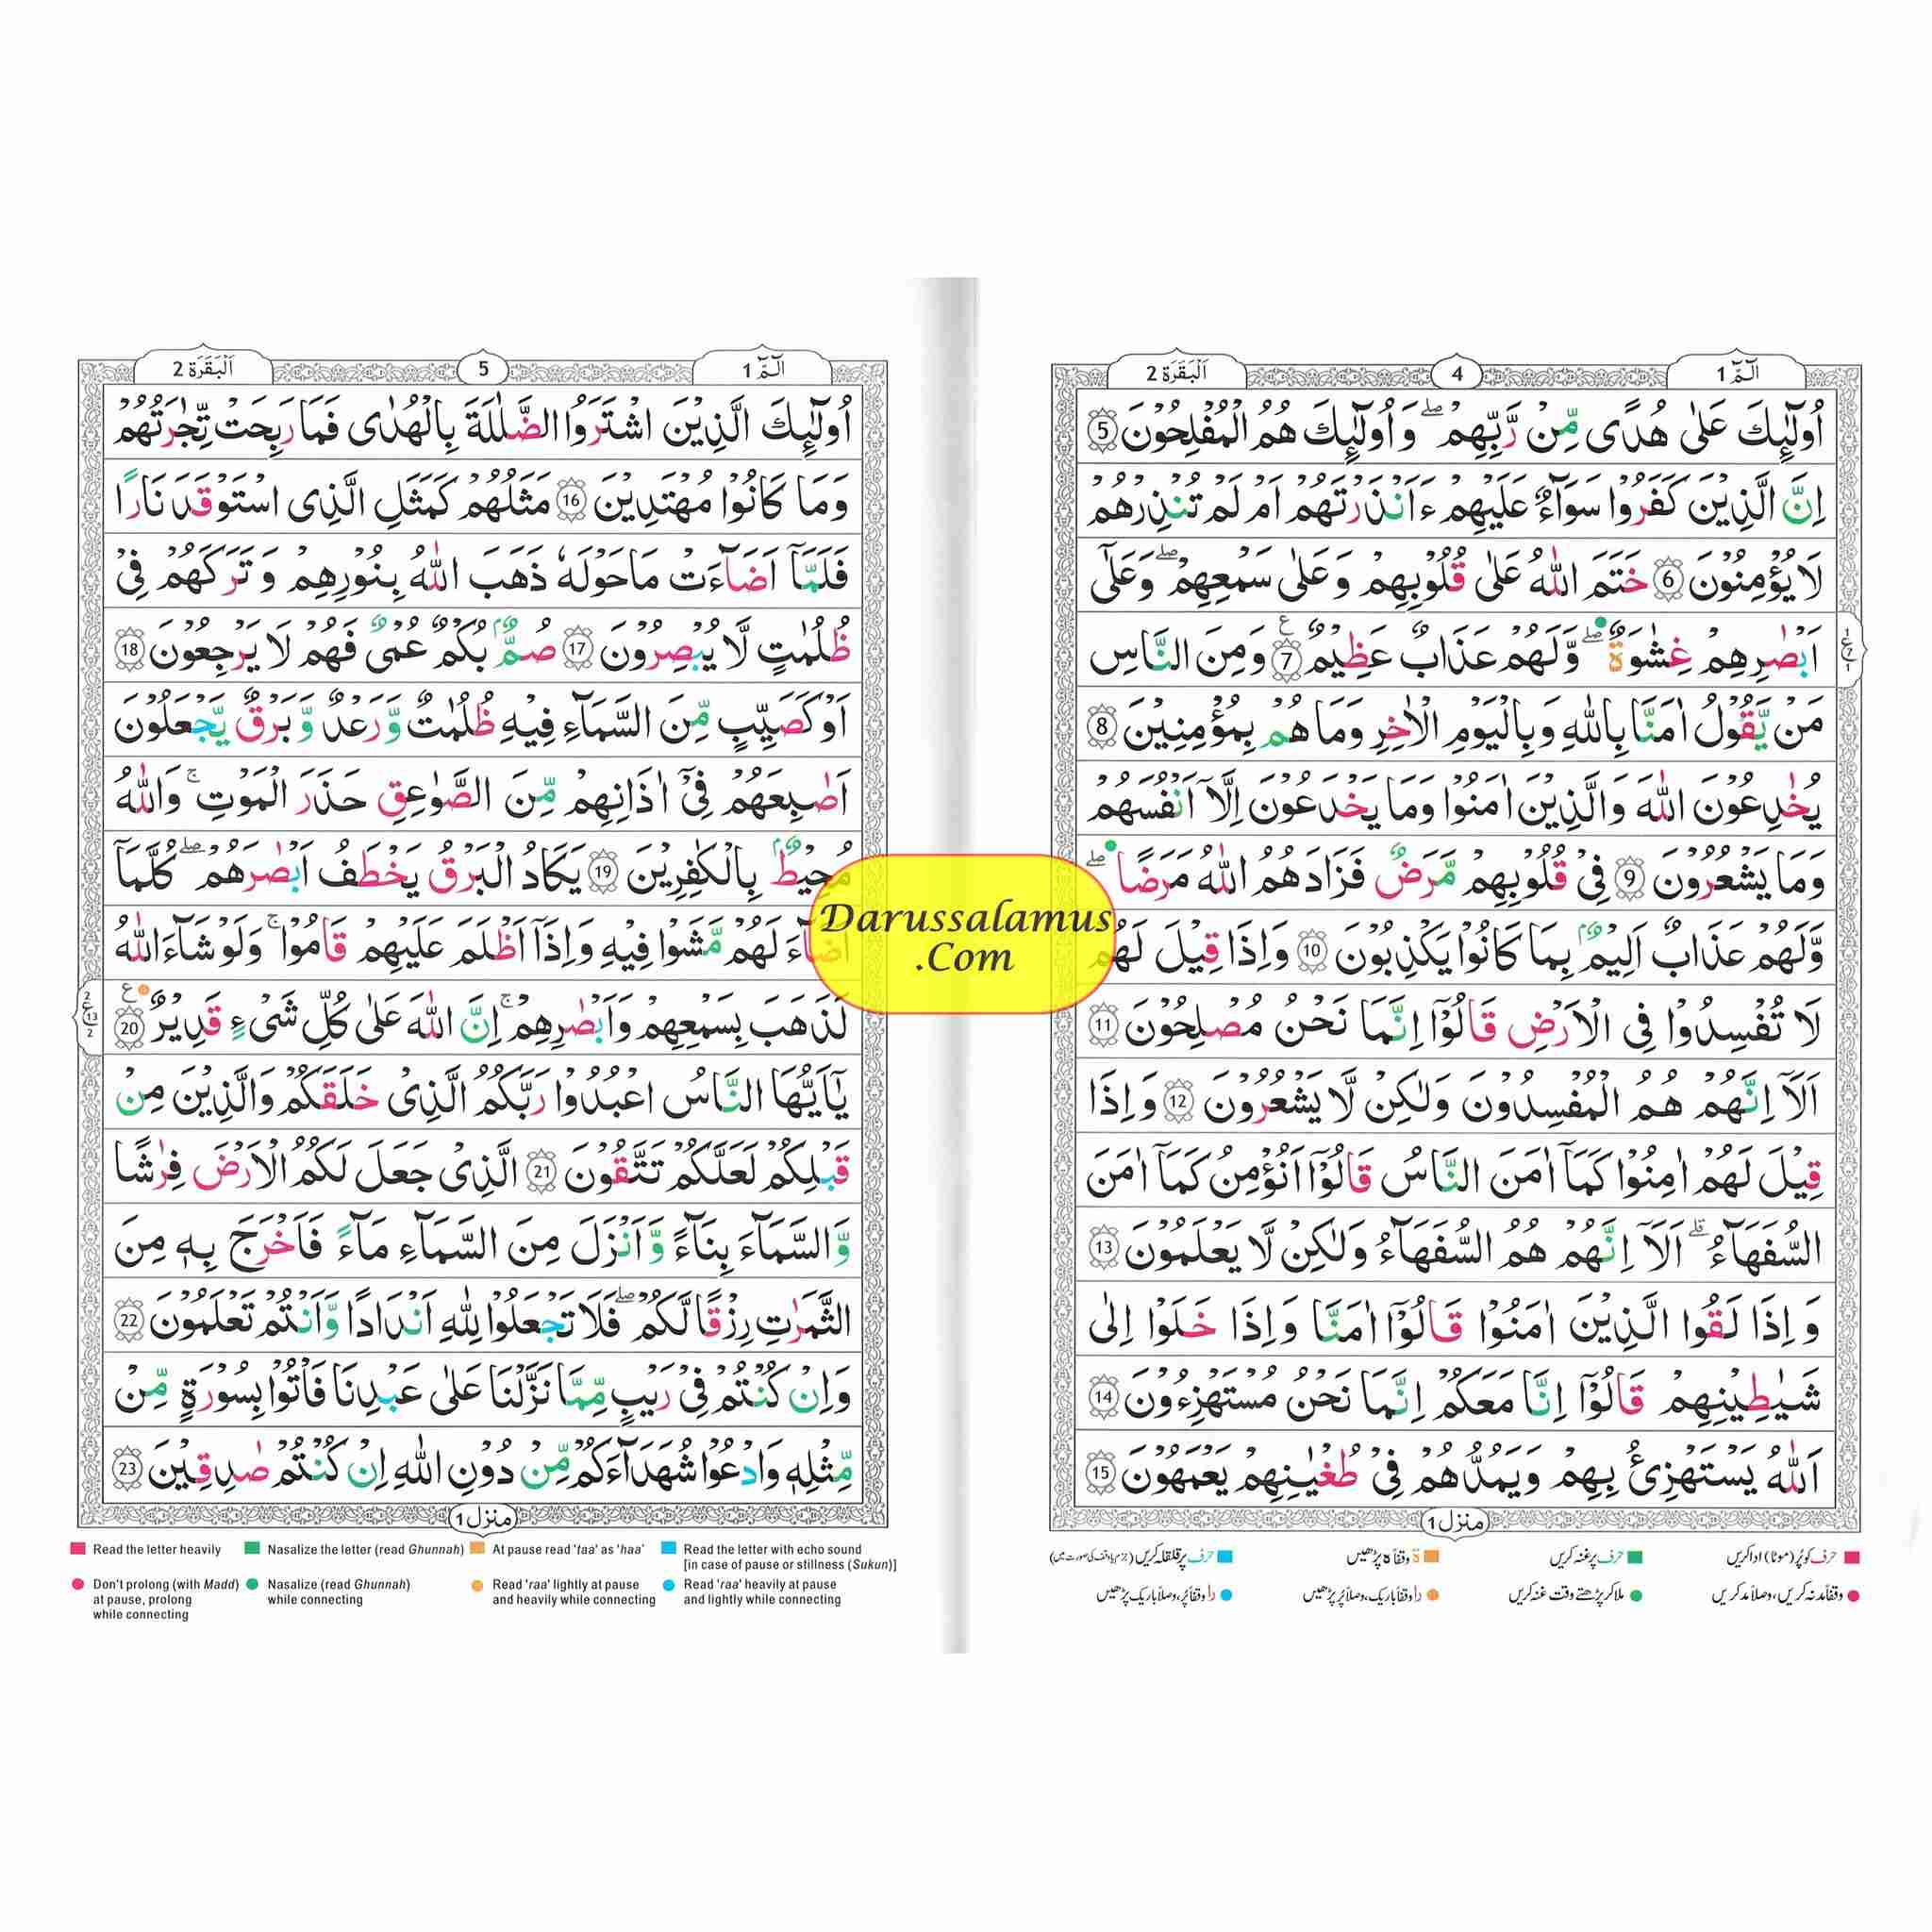 الٓمّٓ 1
4
اَلْبَقَرَة 2
اُولٰٓئِكَ عَلٰى هُدًى مِّنْ رَّبِّهِمْ ۖ وَاُولٰٓئِكَ هُمُ الْمُفْلِحُوْنَ 5
اِنَّ الَّذِيْنَ كَفَرُوْا سَوَآءٌ عَلَيْهِمْ ءَاَنْذَرْتَهُمْ اَمْ لَمْ تُنْذِرْهُمْ
لَا يُؤْمِنُوْنَ 6 خَتَمَ اللّٰهُ عَلٰى قُلُوْبِهِمْ وَعَلٰى سَمْعِهِمْ ۖ وَعَلٰٓى
اَبْصٰرِهِمْ غِشٰوَةٌ ۖ وَّلَهُمْ عَذَابٌ عَظِيْمٌ 7 وَمِنَ النَّاسِ
مَنْ يَّقُوْلُ اٰمَنَّا بِاللّٰهِ وَبِالْيَوْمِ الْاٰخِرِ وَمَا هُمْ بِمُؤْمِنِيْنَ 8
يُخٰدِعُوْنَ اللّٰهَ وَالَّذِيْنَ اٰمَنُوْا وَمَا يَخْدَعُوْنَ اِلَّآ اَنْفُسَهُمْ
وَمَا يَشْعُرُوْنَ 9 فِيْ قُلُوْبِهِمْ مَّرَضٌ فَزَادَهُمُ اللّٰهُ مَرَضًا ۖ
وَّلَهُمْ عَذَابٌ اَلِيْمٌ بِمَا كَانُوْا يَكْذِبُوْنَ 10 وَاِذَا قِيْلَ لَهُمْ
لَا تُفْسِدُوْا فِى الْاَرْضِ قَالُوْٓا اِنَّمَا نَحْنُ مُصْلِحُوْنَ 11
اَلَآ اِنَّهُمْ هُمُ الْمُفْسِدُوْنَ وَلٰكِنْ لَّا يَشْعُرُوْنَ 12 وَاِذَا
قِيْلَ لَهُمْ اٰمِنُوْا كَمَآ اٰمَنَ النَّاسُ قَالُوْٓا اَنُؤْمِنُ كَمَآ اٰمَنَ
السُّفَهَآءُ ۗ اَلَآ اِنَّهُمْ هُمُ السُّفَهَآءُ وَلٰكِنْ لَّا يَعْلَمُوْنَ 13
وَاِذَا لَقُوا الَّذِيْنَ اٰمَنُوْا قَالُوْٓا اٰمَنَّا وَاِذَا خَلَوْا اِلٰى
شَيٰطِيْنِهِمْ قَالُوْٓا اِنَّا مَعَكُمْ اِنَّمَا نَحْنُ مُسْتَهْزِءُوْنَ 14
اَللّٰهُ يَسْتَهْزِئُ بِهِمْ وَيَمُدُّهُمْ فِيْ طُغْيٰنِهِمْ يَعْمَهُوْنَ 15
منزل 1
حرف کو پُر (موٹا) ادا کریں
حرف پر غنہ کریں
ة وقفاً ہ پڑھیں
حرف پر قلقلہ کریں (جزم یا وقف کی صورت میں)
وقفاً مد نہ کریں، وصلاً مد کریں
ملا کر پڑھتے وقت غنہ کریں
را وقفاً باریک، وصلاً پُر پڑھیں
را وقفاً پُر، وصلاً باریک پڑھیں
Darussalamus
.Com
الٓمّٓ 1
5
اَلْبَقَرَة 2
اُولٰٓئِكَ الَّذِيْنَ اشْتَرَوُا الضَّلٰلَةَ بِالْهُدٰى فَمَا رَبِحَتْ تِّجٰرَتُهُمْ
وَمَا كَانُوْا مُهْتَدِيْنَ 16 مَثَلُهُمْ كَمَثَلِ الَّذِى اسْتَوْقَدَ نَارًا
فَلَمَّآ اَضَآءَتْ مَا حَوْلَهٗ ذَهَبَ اللّٰهُ بِنُوْرِهِمْ وَتَرَكَهُمْ فِيْ
ظُلُمٰتٍ لَّا يُبْصِرُوْنَ 17 صُمٌّۢ بُكْمٌ عُمْيٌ فَهُمْ لَا يَرْجِعُوْنَ 18
اَوْ كَصَيِّبٍ مِّنَ السَّمَآءِ فِيْهِ ظُلُمٰتٌ وَّرَعْدٌ وَّبَرْقٌ يَّجْعَلُوْنَ
اَصٰبِعَهُمْ فِيْٓ اٰذَانِهِمْ مِّنَ الصَّوٰعِقِ حَذَرَ الْمَوْتِ ۚ وَاللّٰهُ
مُحِيْطٌۢ بِالْكٰفِرِيْنَ 19 يَكَادُ الْبَرْقُ يَخْطَفُ اَبْصٰرَهُمْ ۖ كُلَّمَآ
اَضَآءَ لَهُمْ مَّشَوْا فِيْهِ وَاِذَآ اَظْلَمَ عَلَيْهِمْ قَامُوْا ۚ وَلَوْ شَآءَ اللّٰهُ
لَذَهَبَ بِسَمْعِهِمْ وَاَبْصٰرِهِمْ ۚ اِنَّ اللّٰهَ عَلٰى كُلِّ شَيْءٍ قَدِيْرٌ 20
يٰٓاَيُّهَا النَّاسُ اعْبُدُوْا رَبَّكُمُ الَّذِيْ خَلَقَكُمْ وَالَّذِيْنَ مِنْ
قَبْلِكُمْ لَعَلَّكُمْ تَتَّقُوْنَ 21 الَّذِيْ جَعَلَ لَكُمُ الْاَرْضَ فِرٰشًا
وَّالسَّمَآءَ بِنَآءً وَّاَنْزَلَ مِنَ السَّمَآءِ مَآءً فَاَخْرَجَ بِهٖ مِنَ
الثَّمَرٰتِ رِزْقًا لَّكُمْ ۖ فَلَا تَجْعَلُوْا لِلّٰهِ اَنْدَادًا وَّاَنْتُمْ تَعْلَمُوْنَ 22
وَاِنْ كُنْتُمْ فِيْ رَيْبٍ مِّمَّا نَزَّلْنَا عَلٰى عَبْدِنَا فَاْتُوْا بِسُوْرَةٍ مِّنْ
مِّثْلِهٖ وَادْعُوْا شُهَدَآءَكُمْ مِّنْ دُوْنِ اللّٰهِ اِنْ كُنْتُمْ صٰدِقِيْنَ 23
منزل 1
Read the letter heavily
Nasalize the letter (read Ghunnah)
At pause read 'taa' as 'haa'
Read the letter with echo sound
[in case of pause or stillness (Sukun)]
Don't prolong (with Madd)
at pause, prolong
while connecting
Nasalize (read Ghunnah)
while connecting
Read 'raa' lightly at pause
and heavily while connecting
Read 'raa' heavily at pause
and lightly while connecting